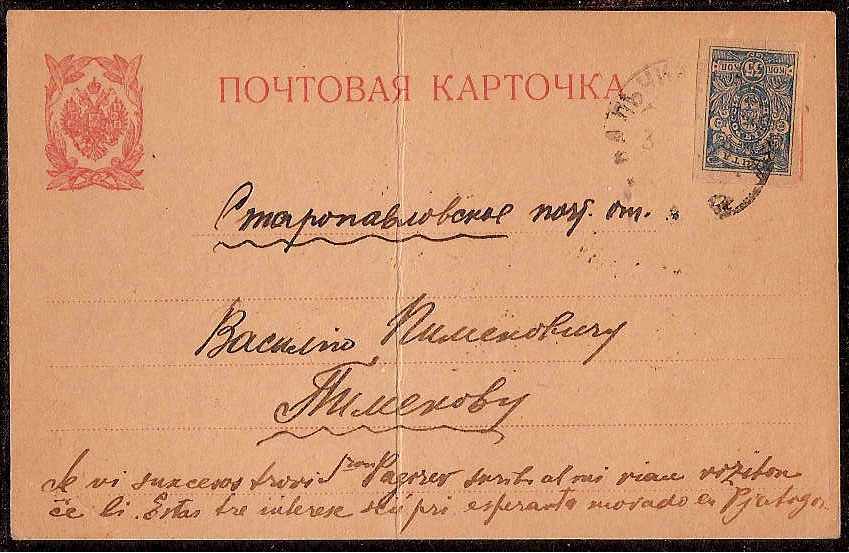 ПОЧТОВАЯ КАРТОЧКА
35 КОП 35 КОП
Старопавловское почт. от.
Василію Пименовичу
Пименову
Se vi sukcesos trovi Pagorev skribu al mi vian viziton
ĉe li. Estas tre interese scii pri esperanta movado en Pjatogor